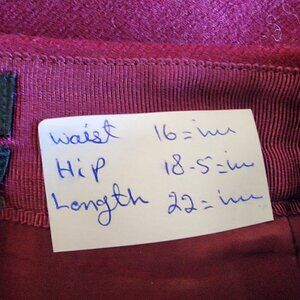 Waist 16=in
Hip 18-5=in
Length 22=in